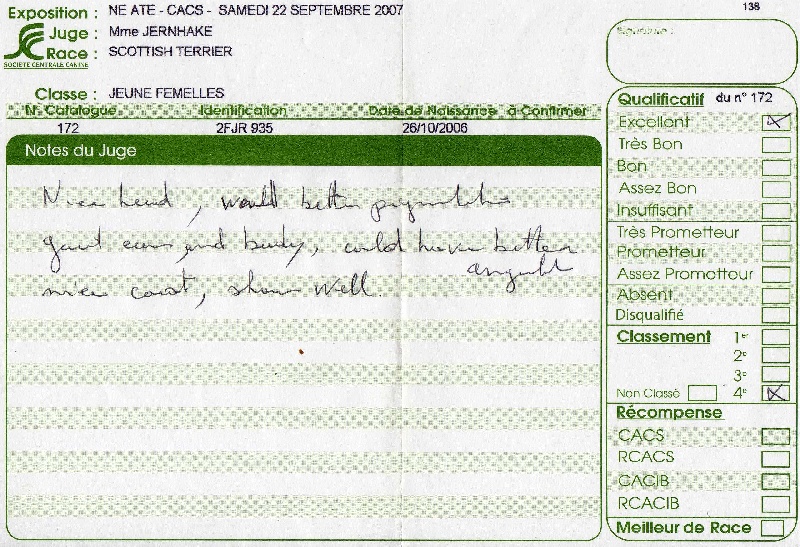 Exposition : NE ATE - CACS - SAMEDI 22 SEPTEMBRE 2007
138
Juge : Mme JERNHAKE
Race : SCOTTISH TERRIER
SOCIÉTÉ CENTRALE CANINE
Signature :
Classe : JEUNE FEMELLES
N° Catalogue Identification Date de Naissance à Confirmer
172 2FJR 935 26/10/2006
Notes du Juge
Nice head, would better
and body, could have better
angulat
nice coat, show well.
Qualificatif du n° 172
Excellent
Très Bon
Bon
Assez Bon
Insuffisant
Très Prometteur
Prometteur
Assez Prometteur
Absent
Disqualifié
Classement 1e
2e
3e
Non Classé 4e
Récompense
CACS
RCACS
CACIB
RCACIB
Meilleur de Race